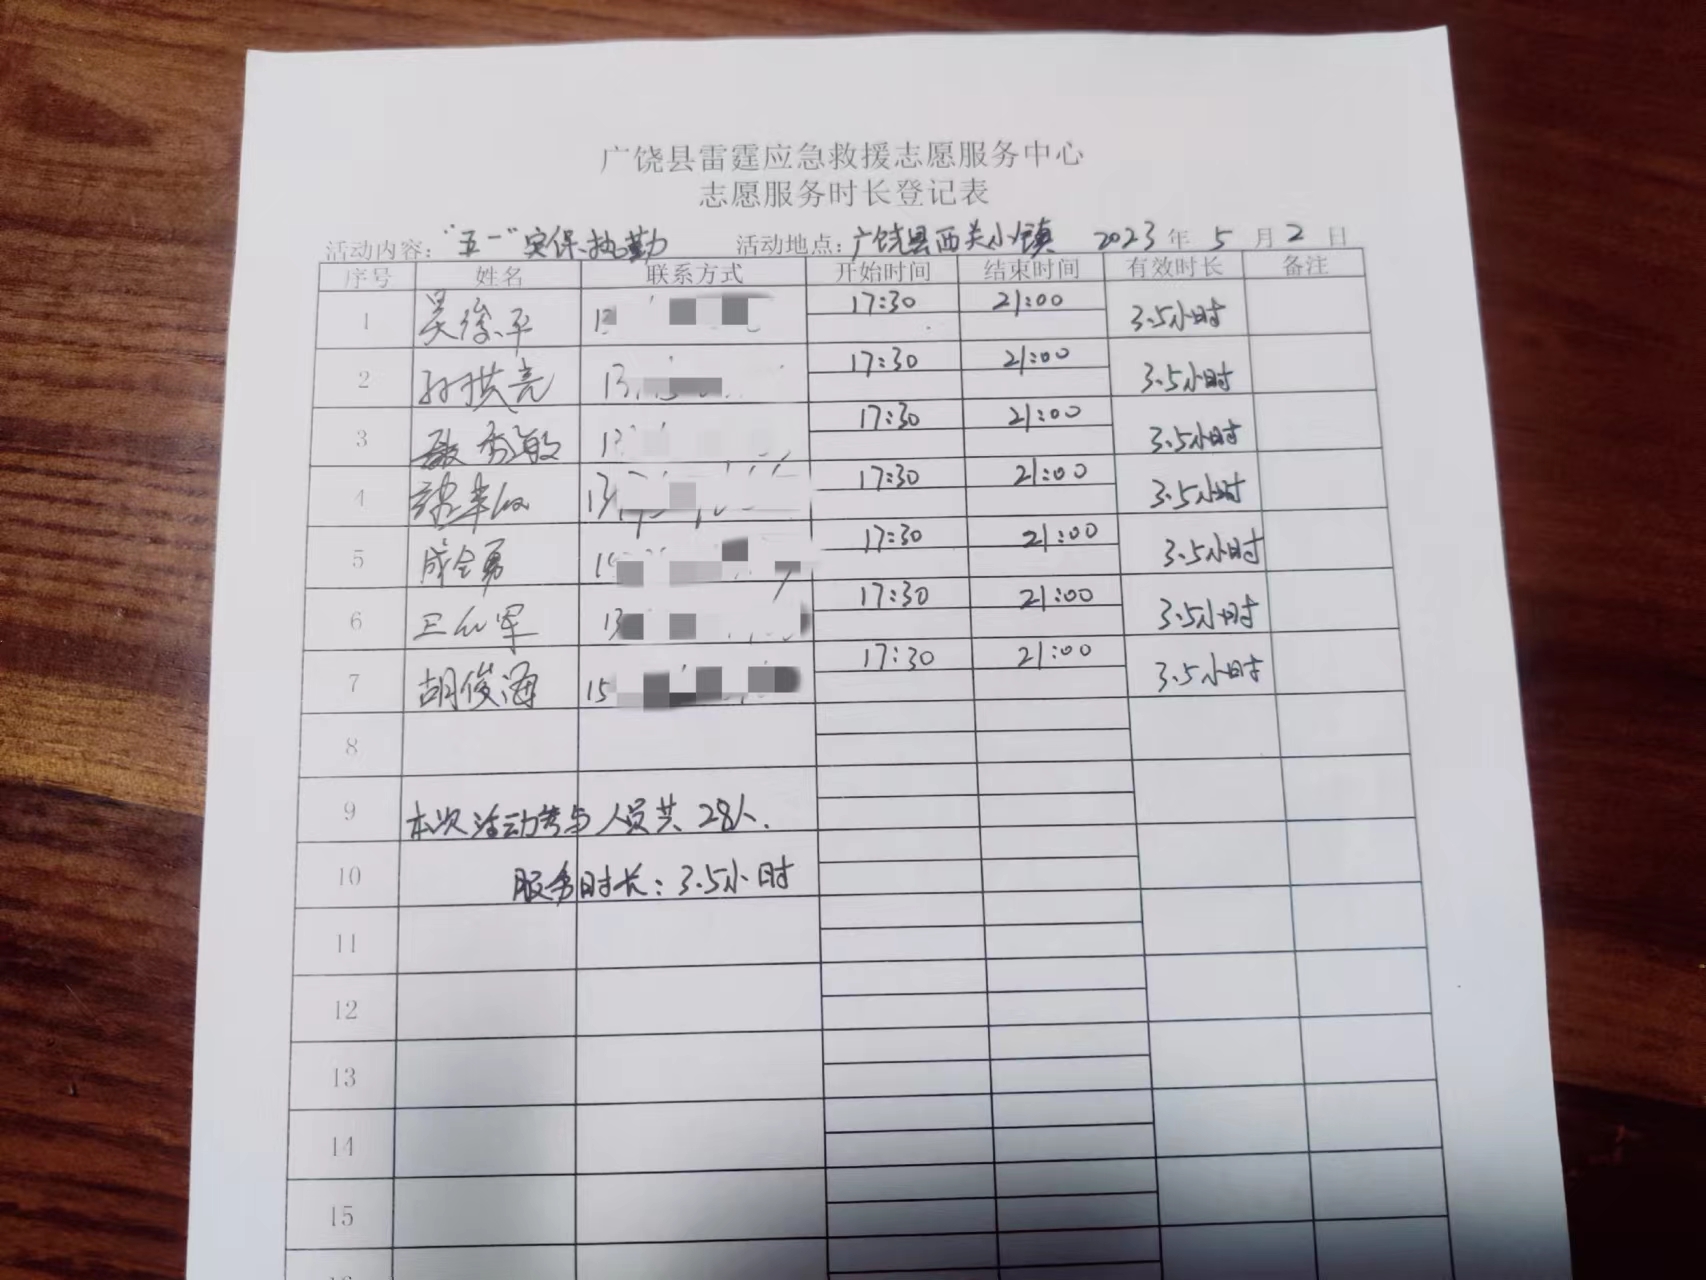 广饶县雷霆应急救援志愿服务中心
志愿服务时长登记表
活动内容：“五一”安保执勤 活动地点：广饶县西关小镇 2023年5月2日
序号 姓名 联系方式 开始时间 结束时间 有效时长 备注
1 17:30 21:00 3.5小时
2 孙洪亮 13 17:30 21:00 3.5小时
3 17:30 21:00 3.5小时
4 13 17:30 21:00 3.5小时
5 成全勇 17:30 21:00 3.5小时
6 13 17:30 21:00 3.5小时
7 胡俊海 15 17:30 21:00 3.5小时
8
9 本次活动参与人员共28人.
10 服务时长：3.5小时
11
12
13
14
15